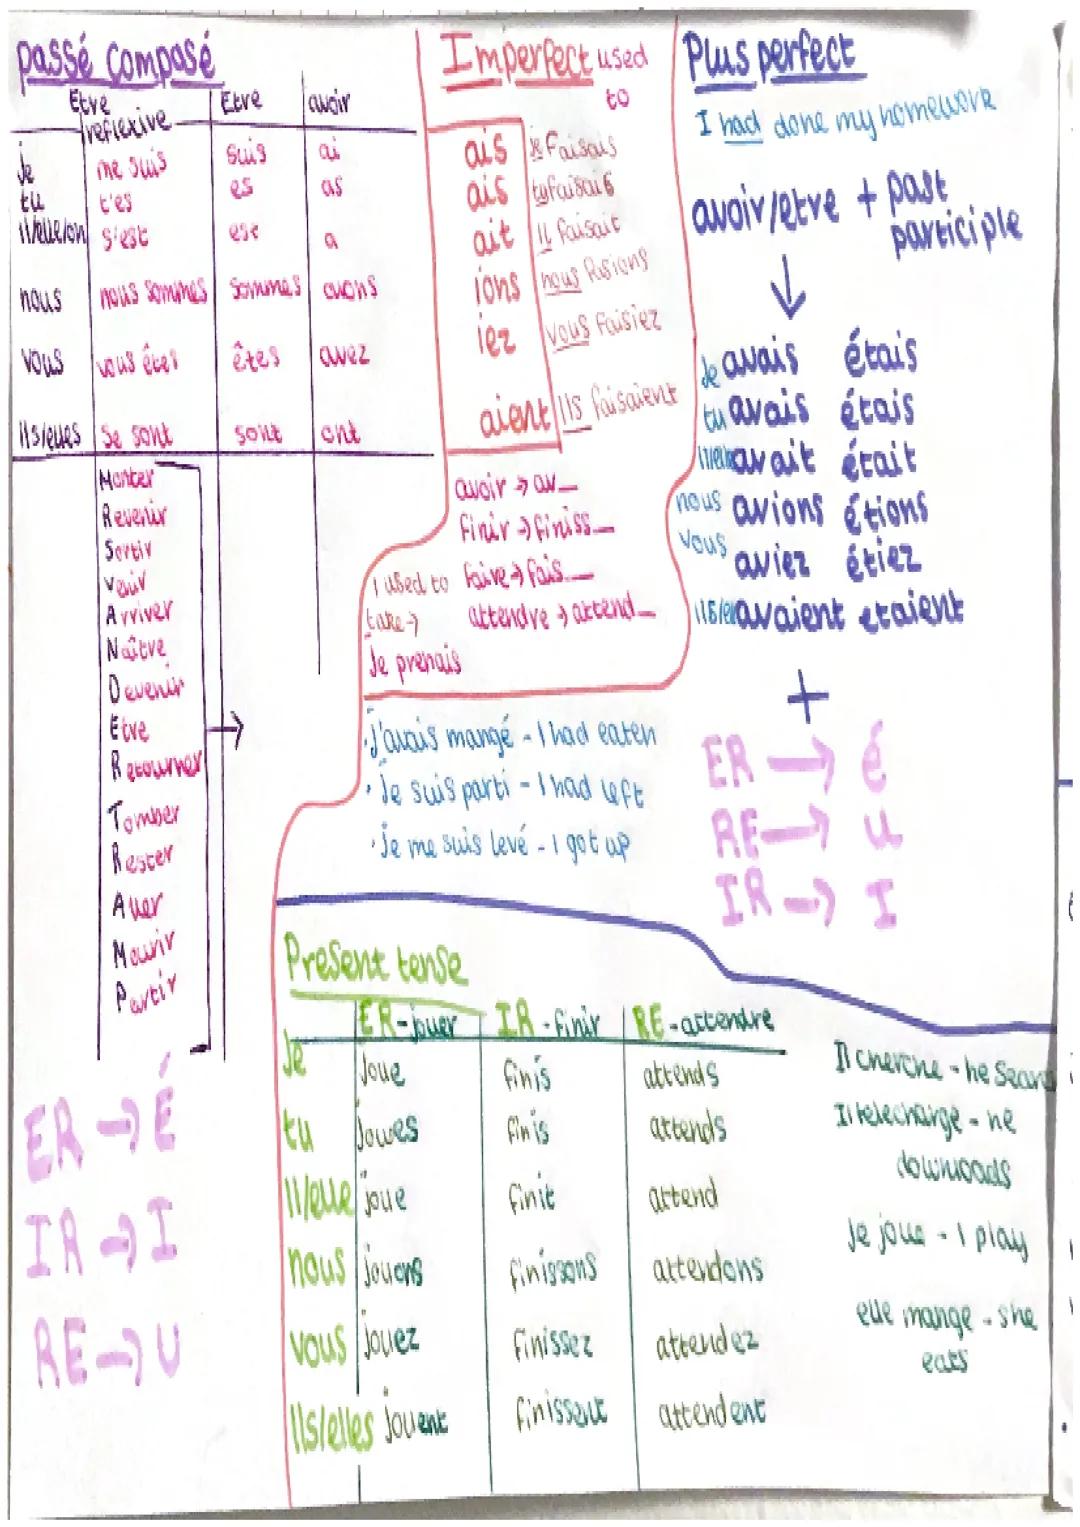 passé composé
Etre reflexive Etre avoir
je me suis suis ai
tu t'es es as
il/elle/on s'est est a
nous nous sommes sommes avons
vous vous êtes êtes avez
ils/elles se sont sont ont
Monter
Revenir
Sortir
Venir
Arriver
Naître
Devenir
Etre
Retourner
Tomber
Rester
Aller
Mourir
Partir
ER → É
IR → I
RE → U
Imperfect used to
ais je faisais
ais tu faisais
ait il faisait
ions nous faisions
iez vous faisiez
aient ils faisaient
avoir → av_
finir → finiss_
faire → fais_
attendre → attend_
I used to
take →
Je prenais
Plus perfect
I had done my homework
avoir/etre + past participle
↓
Je avais étais
tu avais étais
il/elle avait était
nous avions étions
vous aviez étiez
ils/el avaient etaient
+
ER → é
RE → u
IR → I
· j'avais mangé - I had eaten
· Je suis parti - I had left
· Je me suis levé - I got up
Present tense
ER - jouer IR - finir RE - attendre
Je joue finis attends
tu joues finis attends
il/elle joue finit attend
nous jouons finissons attendons
vous jouez finissez attendez
ils/elles jouent finissent attendent
Il cherche - he sear
Il telecharge - he
downloads
Je joue - I play
elle mange - she
eats